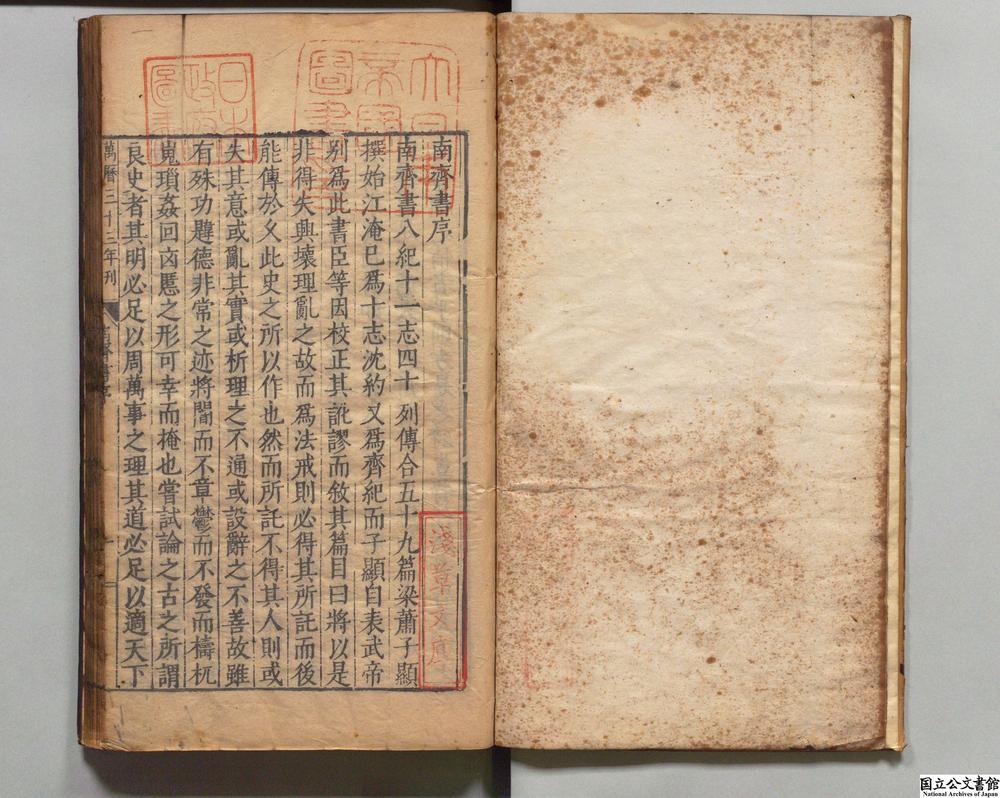 南齊書序
南齊書八紀十一志四十列傳合五十九篇梁蕭子顯
撰始江淹巳爲十志沈約又爲齊紀而子顯自表武帝
别爲此書臣等因校正其訛謬而敘其篇目曰將以是
非得失興壞理亂之故而爲法戒則必得其所託而後
能傳於久此史之所以作也然而所託不得其人則或
失其意或亂其實或析理之不通或設辭之不善故雖
有殊功韙德非常之迹將闇而不章鬱而不發而檮杌
嵬瑣姦回凶慝之形可幸而掩也嘗試論之古之所謂
良史者其明必足以周萬事之理其道必足以適天下
萬曆三十三年刊
淺草文庫
日本政府圖書
国立公文書館
National Archives of Japan